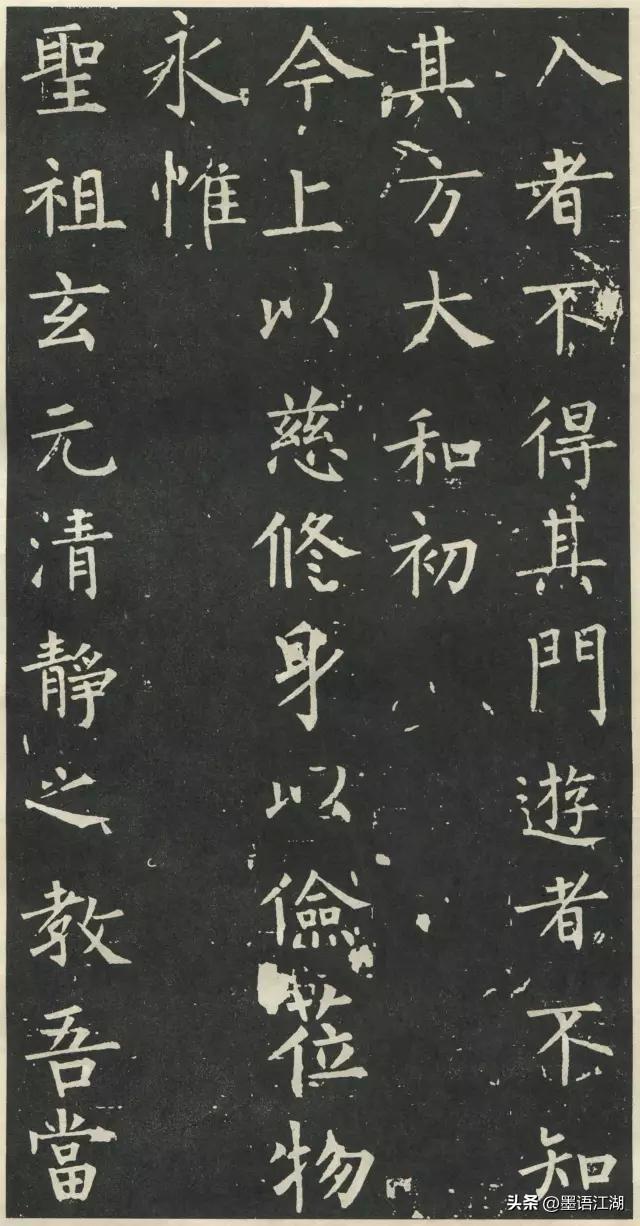 入者不得其門遊者不知
其方大和初
今上以慈修身以儉莅物
永惟
聖祖玄元清靜之教吾當
头条 @墨语江湖